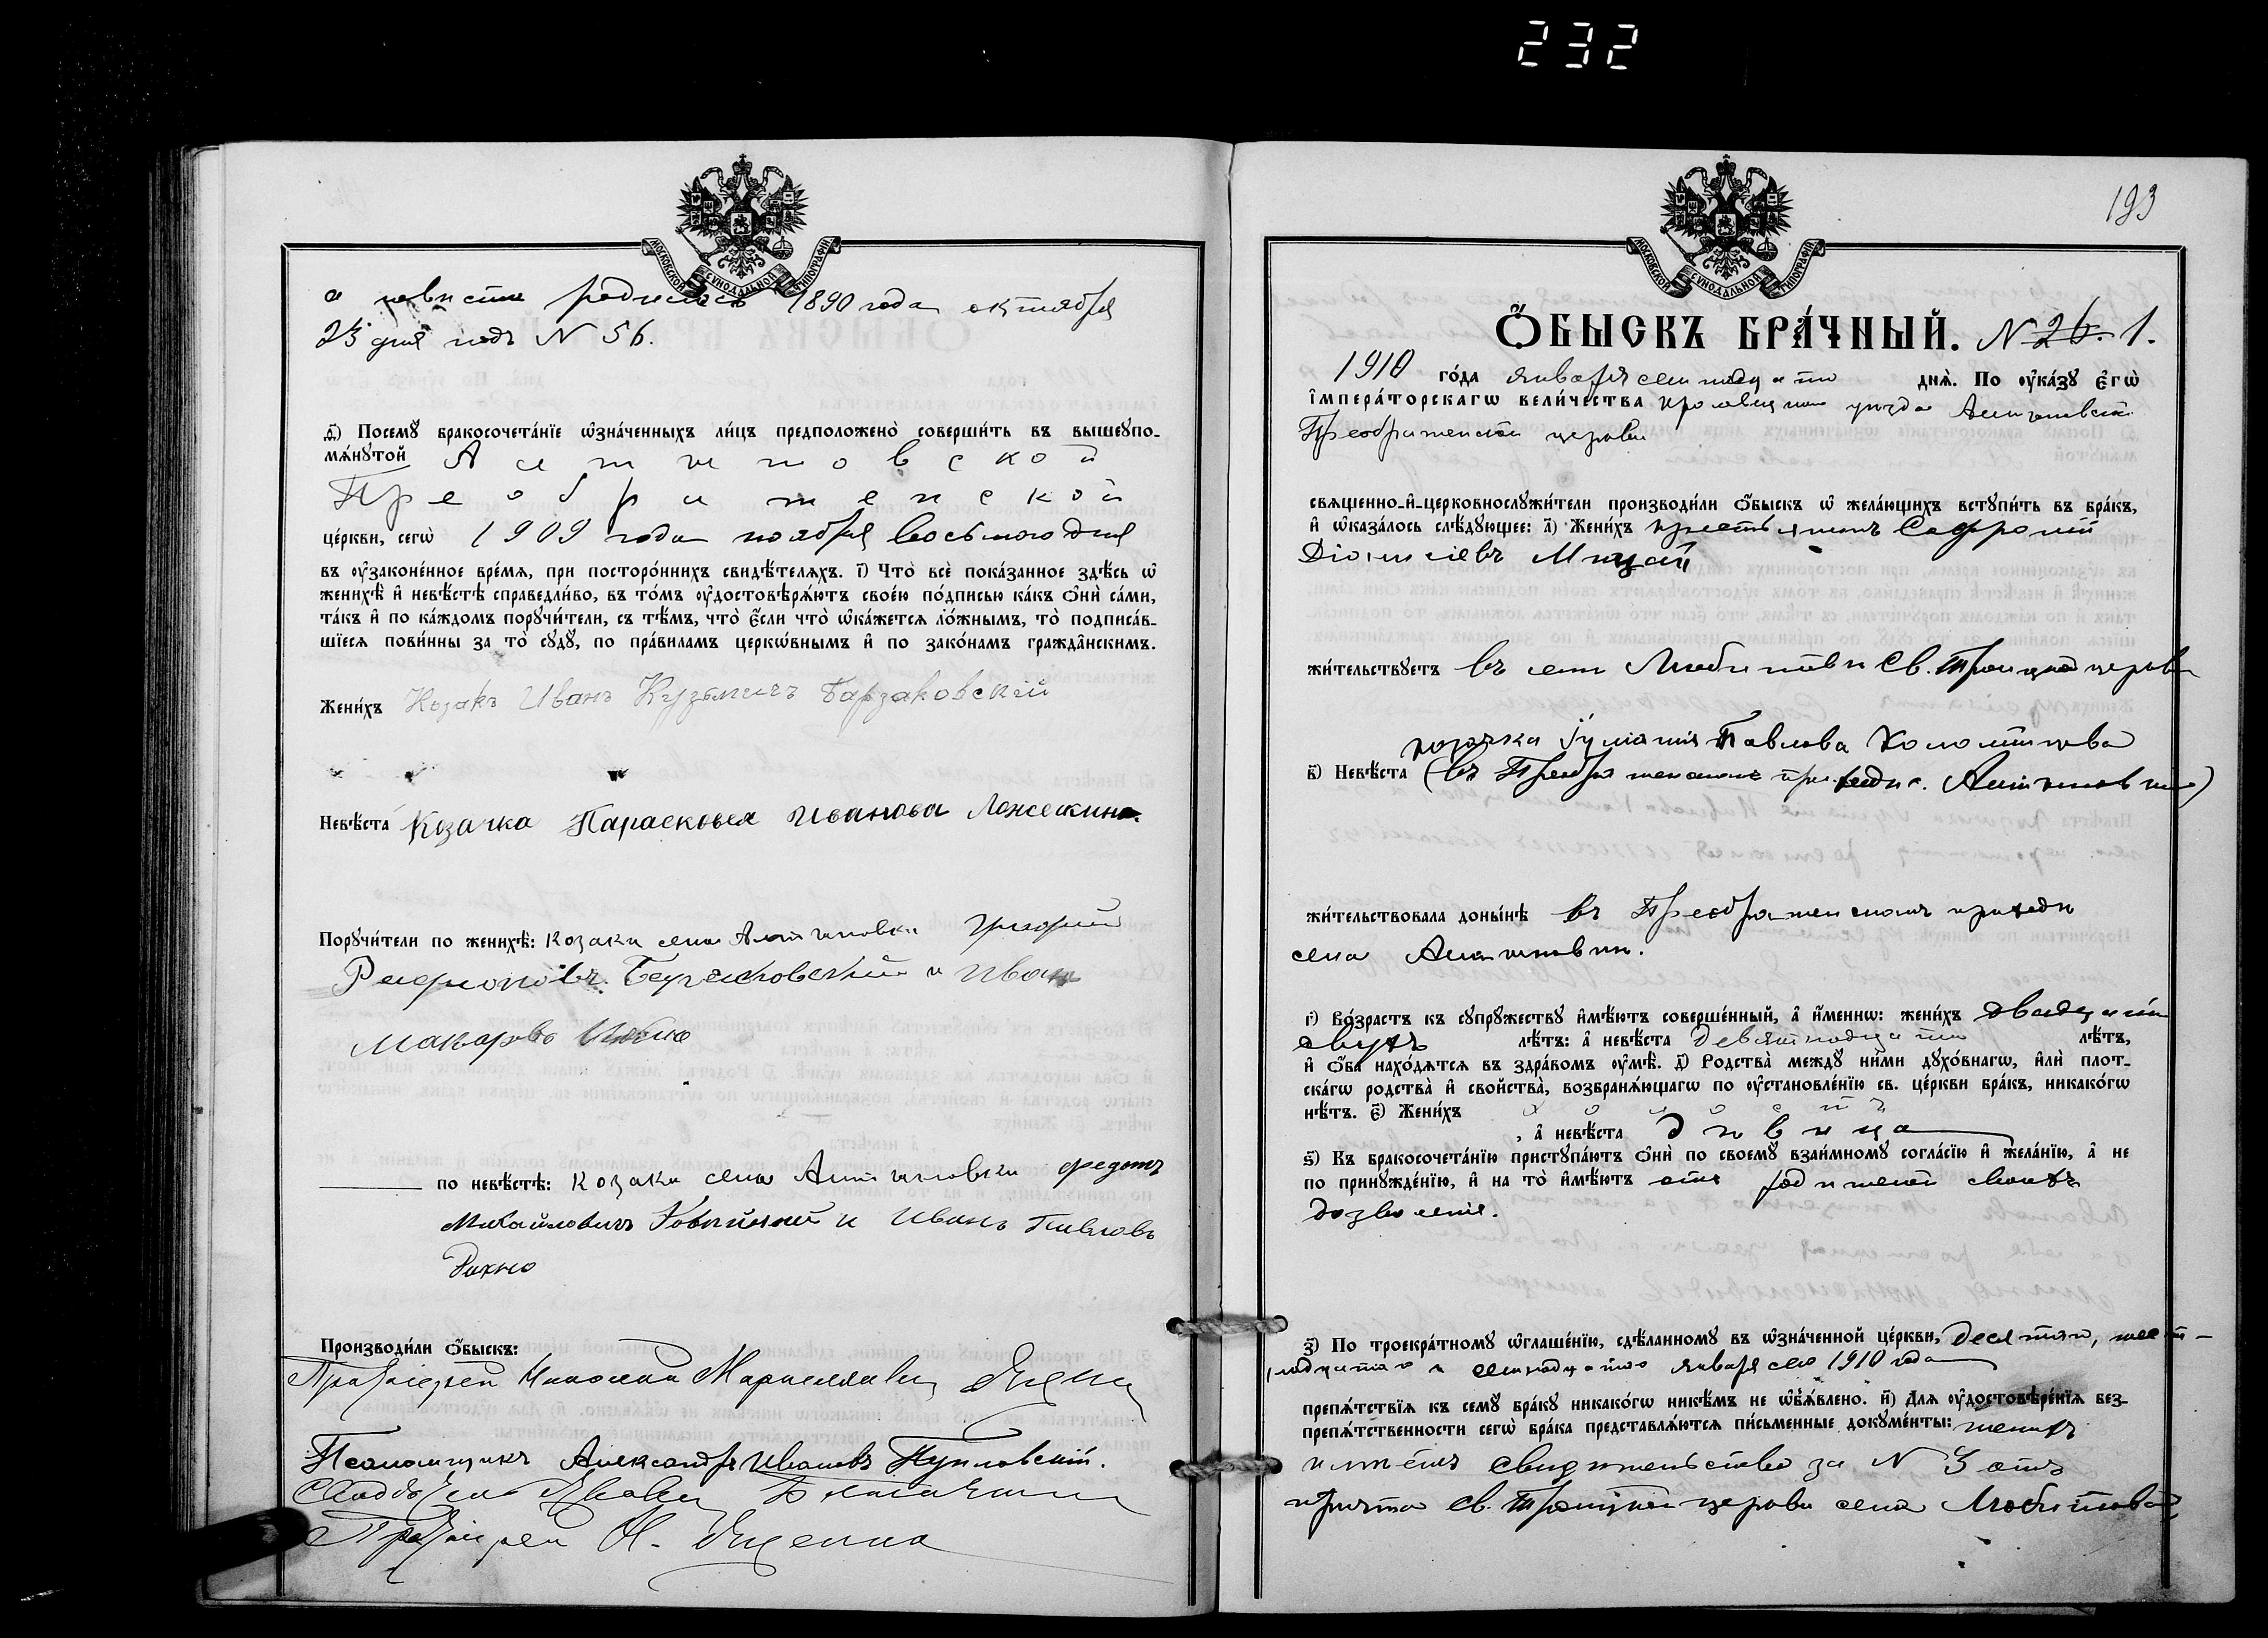 232
МОСКОВСКОЙ СѴНОДАЛЬНОЙ ТИПОГРАФІИ
а невеста родилась 1890 года октября
23 дня подъ N 56.
ѳ҃) Посемꙋ̀ бракосочета́нїе ѡ҆зна́ченныхъ ли́цъ предположено̀ соверши́ть въ вышеꙋпо-
мѧ́нꙋтой Алтиновской
Преображенской
це́ркви, сегѡ̀ 1909 года ноября восьмого дня
въ ᲂу҆законе́нное вре́мѧ, при посторо́ннихъ свидѣ́телѧхъ. і҃) Что̀ всѐ пока́занное здѣ́сь ѡ҆
женихѣ̀ и҆ невѣ́стѣ справедли́во, въ то́мъ ᲂу҆достовѣрѧ́ютъ свое́ю по́дписью ка́къ ѻ҆нѝ са́ми,
та́къ и҆ по ка́ждомъ порꙋчи́тели, съ тѣ́мъ, что̀ є҆́сли что̀ ѡ҆ка́жетсѧ ло́жнымъ, то̀ подписа́в-
шїесѧ пови́нны за то̀ сꙋдꙋ̀, по пра́виламъ церкѡ́внымъ и҆ по зако́намъ гражда̑нскимъ.
Жени́хъ Козакъ Иванъ Кузьмичъ Барзаковский
Невѣ́ста Козачка Парасковья Иванова Ложешкина.
Порꙋчи́тели по женихѣ̀: козаки села Алтиновки Григорий
и Иван
Макаровъ
по невѣ́стѣ: козаки села Алтиновки Федотъ
Михайловичъ и Иванъ Павловъ
Рахно
Производи́ли ѻ҆́быскъ:
Протоіерей Николай
Псаломщикъ Александръ Ивановъ Пупловскій.
Протоіерей Н.
193
МОСКОВСКОЙ СѴНОДАЛЬНОЙ ТИПОГРАФІИ
Ѻ҆́БЫСКЪ БРА́ЧНЫЙ. N 26. 1.
1910 го́да января семнадцатаго днѧ̀. По ᲂу҆ка́зꙋ Є҆гѡ̀
І҆мпера́торскагѡ вели́чества Кролевецкаго уезда Алтиновской
Преображенской церкви
свѧщенно-и҆-церковнослꙋжи́тели производи́ли ѻ҆́быскъ ѡ҆ жела́ющихъ встꙋпи́ть въ бра́къ,
и҆ ѡ҆каза́лось слѣ́дꙋющее: а҃) Жени́хъ крестьянинъ Софроній
Діонисіевъ Мицай
жи́тельствꙋетъ въ селе Любитове Св. Троицкой церкви
козачка Іуліанія Павлова Коломійцева
в҃) Невѣ́ста (въ Преображенскомъ приходе с. Алтиновки)
жи́тельствовала доны́нѣ въ Преображенскомъ приходе
села Алтиновки.
г҃) Во́зрастъ къ сꙋпрꙋ́жествꙋ и҆мѣ́ютъ соверше́нный, а҆ и҆́меннѡ: жени́хъ двадцати
двухъ лѣ́тъ: а҆ невѣ́ста девятнадцати лѣ́тъ,
и҆ ѻ҆́ба нахо́дѧтсѧ въ здра́вомъ ᲂу҆мѣ̀. д҃) Родства̀ междꙋ̀ ни́ми дꙋхо́внагѡ, и҆лѝ плот-
ска́гѡ родства̀ и҆ свойства̀, возбранѧ́ющагѡ по ᲂу҆становле́нїю св. це́ркви бра́къ, никако́гѡ
нѣ́тъ. є҃) Жени́хъ холостъ
, а҆ невѣ́ста девица
ѕ҃) Къ бракосочета́нїю пристꙋпа́ютъ ѻ҆нѝ по своемꙋ̀ взаи́мномꙋ согла́сїю и҆ жела́нїю, а҆ не
по принꙋжде́нїю, и҆ на то̀ и҆мѣ́ютъ отъ родителей своихъ
дозволенія.
з҃) По троекра́тномꙋ ѡ҆глаше́нїю, сдѣ́ланномꙋ въ ѡ҆зна́ченной це́ркви, десятаго, шест-
надцатаго и семнадцатаго января сего 1910 года
препѧ́тствїѧ къ семꙋ̀ бра́кꙋ никако́гѡ никѣ́мъ не ѡ҆б̾ѧ́влено. и҃) Длѧ ᲂу҆достовѣре́нїѧ без-
препѧ́тственности сегѡ̀ бра́ка представлѧ́ютсѧ пи́сьменные докꙋме́нты: женихъ
имеетъ свидетельство за N 3 отъ
причта Св. Троицкой церкви села Любитова